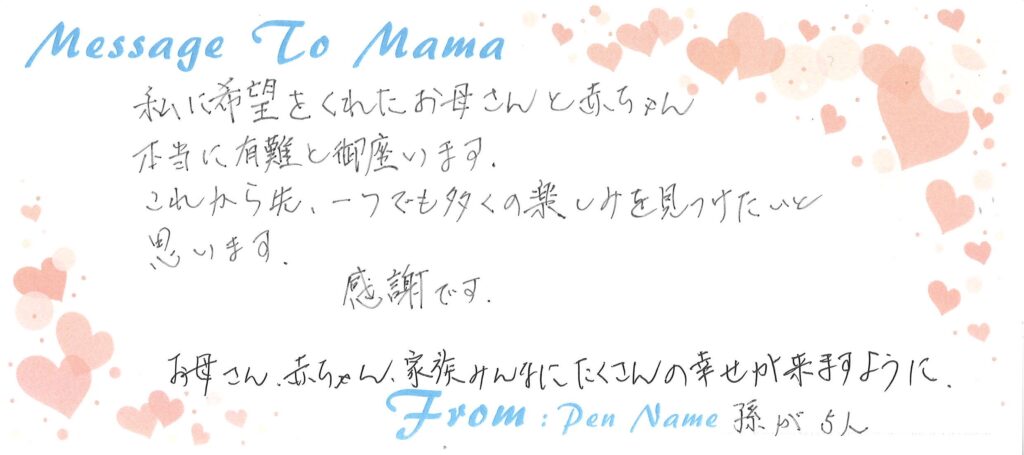 Message To Mama
私に希望をくれたお母さんと赤ちゃん
本当に有難と御座います.
これから先、一つでも多くの楽しみを見つけたいと
思います.
感謝です.
お母さん、赤ちゃん、家族みんなにたくさんの幸せが来ますように.
From : Pen Name 孫が5人